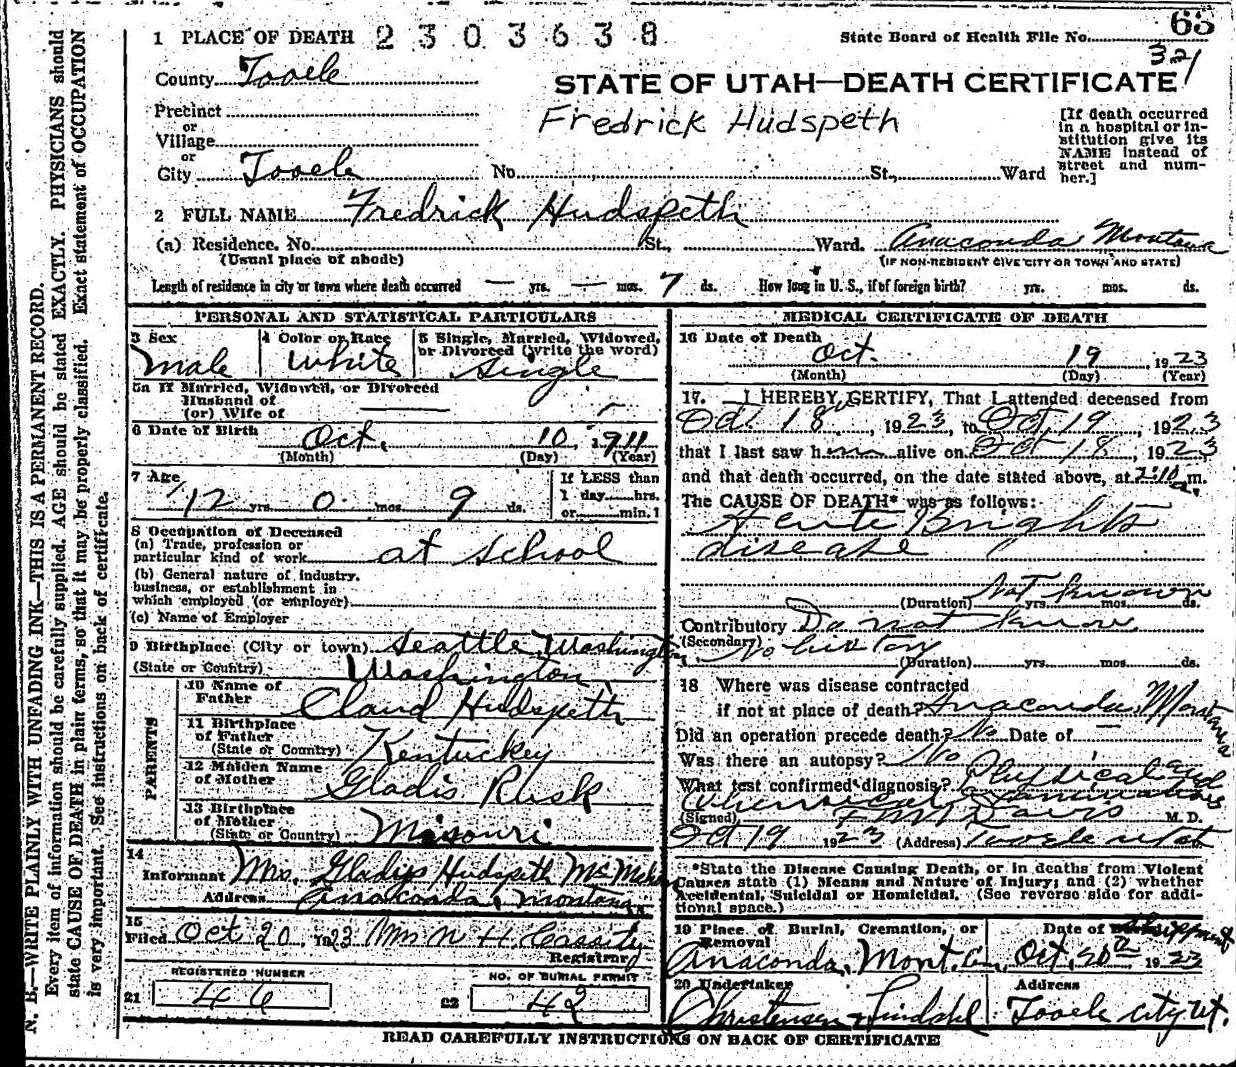 65
1 PLACE OF DEATH 2303638 State Board of Health File No. 321
County Tooele
STATE OF UTAH—DEATH CERTIFICATE
Precinct
or
Village
Fredrick Hudspeth
[If death occurred in a hospital or institution give its NAME instead of street and number.]
or
City Tooele No. St., Ward
2 FULL NAME Fredrick Hudspeth
(a) Residence. No. St., Ward. Anaconda Montana
(Usual place of abode) (IF NON-RESIDENT GIVE CITY OR TOWN AND STATE)
Length of residence in city or town where death occurred — yrs. — mos. 7 ds. How long in U. S., if of foreign birth? yrs. mos. ds.
PERSONAL AND STATISTICAL PARTICULARS
3 Sex 4 Color or Race 5 Single, Married, Widowed, or Divorced (write the word)
Male White Single
5a If Married, Widowed, or Divorced
Husband of
(or) Wife of
6 Date of Birth Oct. 10, 1911
(Month) (Day) (Year)
7 Age If LESS than
12 yrs. 0 mos. 9 ds. 1 day hrs.
or min.?
8 Occupation of Deceased
(a) Trade, profession or
particular kind of work at School
(b) General nature of industry,
business, or establishment in
which employed (or employer)
(c) Name of Employer
9 Birthplace (City or town) Seattle Washington
(State or Country) Washington
PARENTS
10 Name of
Father Claud Hudspeth
11 Birthplace
of Father
(State or Country) Kentuckey
12 Maiden Name
of Mother Gladis Rusk
13 Birthplace
of Mother
(State or Country) Missouri
14
Informant Mrs. Gladys Hudspeth
Address Anaconda, Montana
15
Filed Oct 20 1923 Mrs N H Cassity
Registrar
REGISTERED NUMBER NO. OF BURIAL PERMIT
21 46 22 42
MEDICAL CERTIFICATE OF DEATH
16 Date of Death
Oct. 19, 1923
(Month) (Day) (Year)
17. I HEREBY CERTIFY, That I attended deceased from
Oct 18, 1923, to Oct 19, 1923
that I last saw him alive on Oct 18, 1923,
and that death occurred, on the date stated above, at 2:10 a.m.
The CAUSE OF DEATH* was as follows:
Acute Brights
disease
Not known
(Duration) yrs. mos. ds.
Contributory Do not know
(Secondary) No history
(Duration) yrs. mos. ds.
18 Where was disease contracted
if not at place of death? Anaconda, Montana
Did an operation precede death? No Date of —
Was there an autopsy? No
What test confirmed diagnosis? Physical and
Chemical Examinations
(Signed) Davis M. D.
Oct 19 1923 (Address) Tooele Utah
*State the Disease Causing Death, or in deaths from Violent
Causes state (1) Means and Nature of Injury; and (2) whether
Accidental, Suicidal or Homicidal. (See reverse side for additional space.)
19 Place of Burial, Cremation, or Removal Date of Shipment
Anaconda, Mont. Oct. 20th 1923
20 Undertaker Address
Christensen & Lindahl Tooele City Ut.
READ CAREFULLY INSTRUCTIONS ON BACK OF CERTIFICATE
N. B.—WRITE PLAINLY WITH UNFADING INK—THIS IS A PERMANENT RECORD.
Every item of information should be carefully supplied. AGE should be stated EXACTLY. PHYSICIANS should
state CAUSE OF DEATH in plain terms, so that it may be properly classified. Exact statement of OCCUPATION
is very important. See instructions on back of certificate.